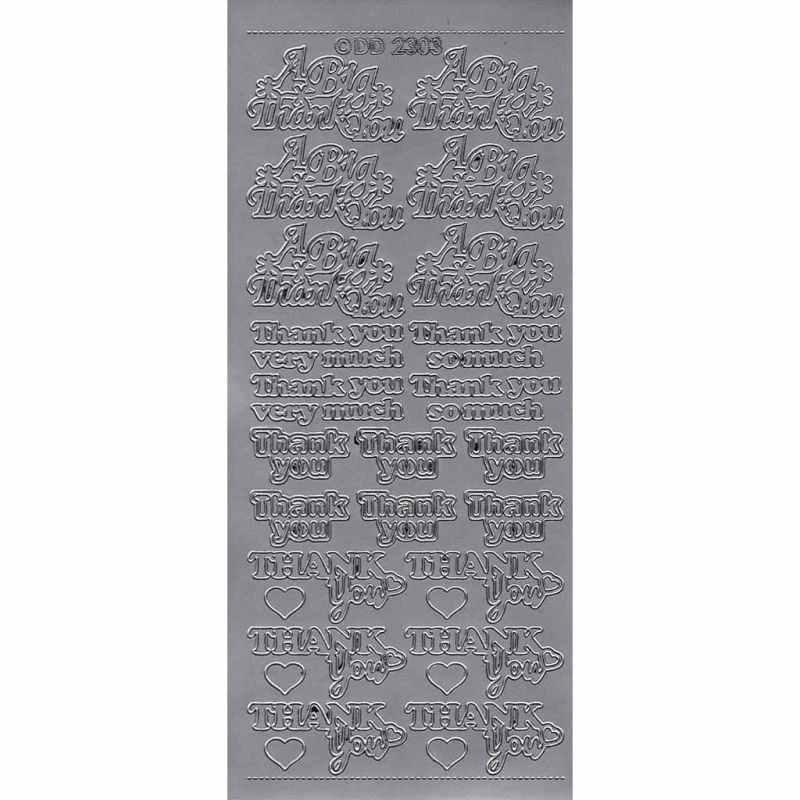 ©DD 2303
A Big A Big
Thank You Thank You
A Big A Big
Thank You Thank You
A Big A Big
Thank You Thank You
Thank you Thank you
very much so much
Thank you Thank you
very much so much
Thank Thank Thank
you you you
Thank Thank Thank
you you you
THANK THANK
You You
THANK THANK
You You
THANK THANK
You You